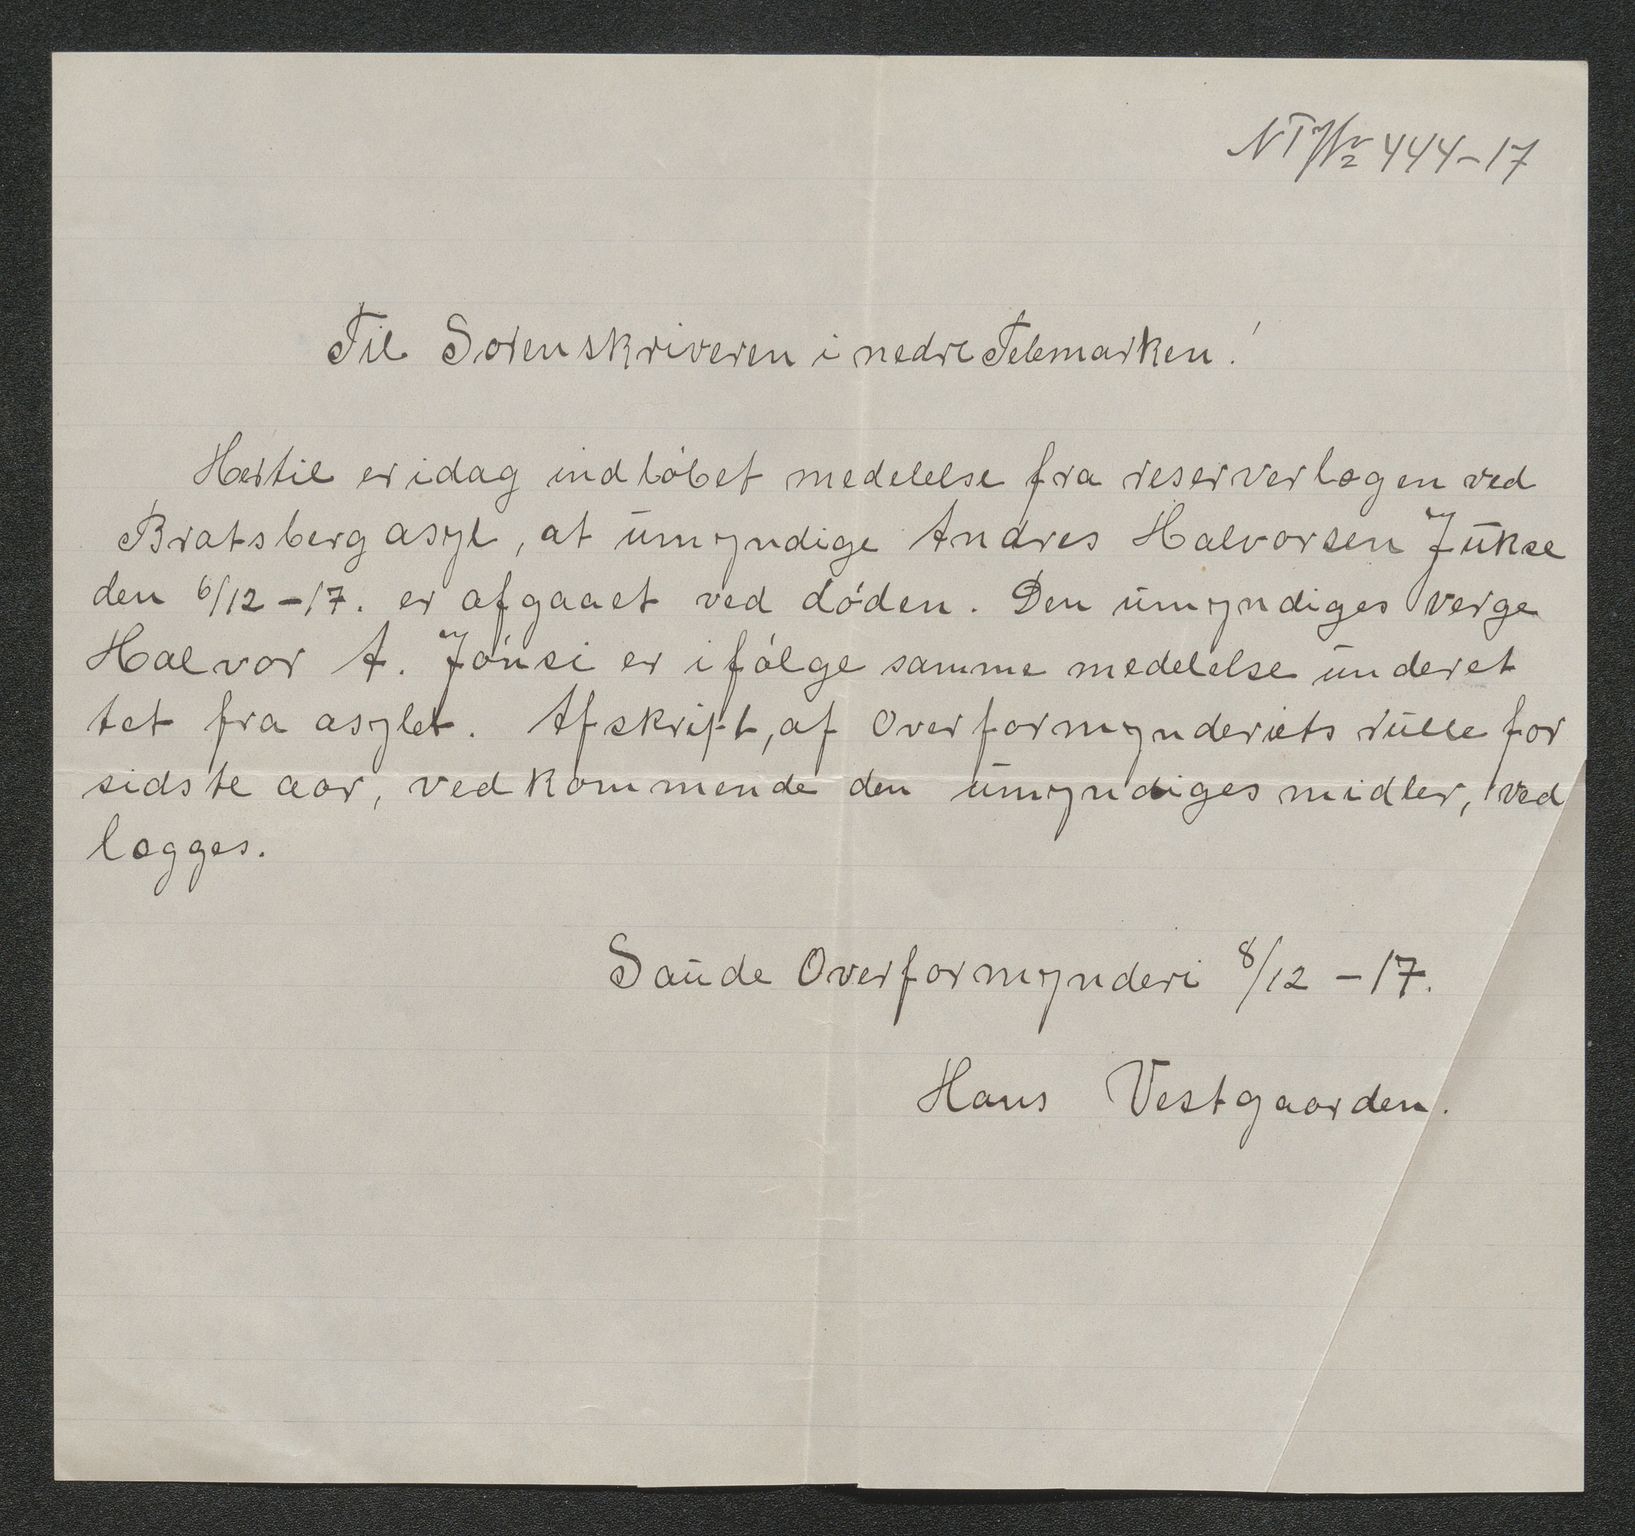 444-17
Til Sorenskriveren i nedre Telemarken!
Hertil er idag indløbet medelelse fra reserverlægen ved
Bratsberg asyl, at umyndige Andres Halvorsen Jukse
den 6/12-17. er afgaaet ved døden. Den umyndiges verge
Halvor A. Jønsi er ifølge samme medelelse underet
tet fra asylet. Afskrift, af Overformynderiets rulle for
sidste aar, vedkommende den umyndiges midler, ved
lægges.
Saude Overformynderi 8/12-17.
Hans Vestgaarden.